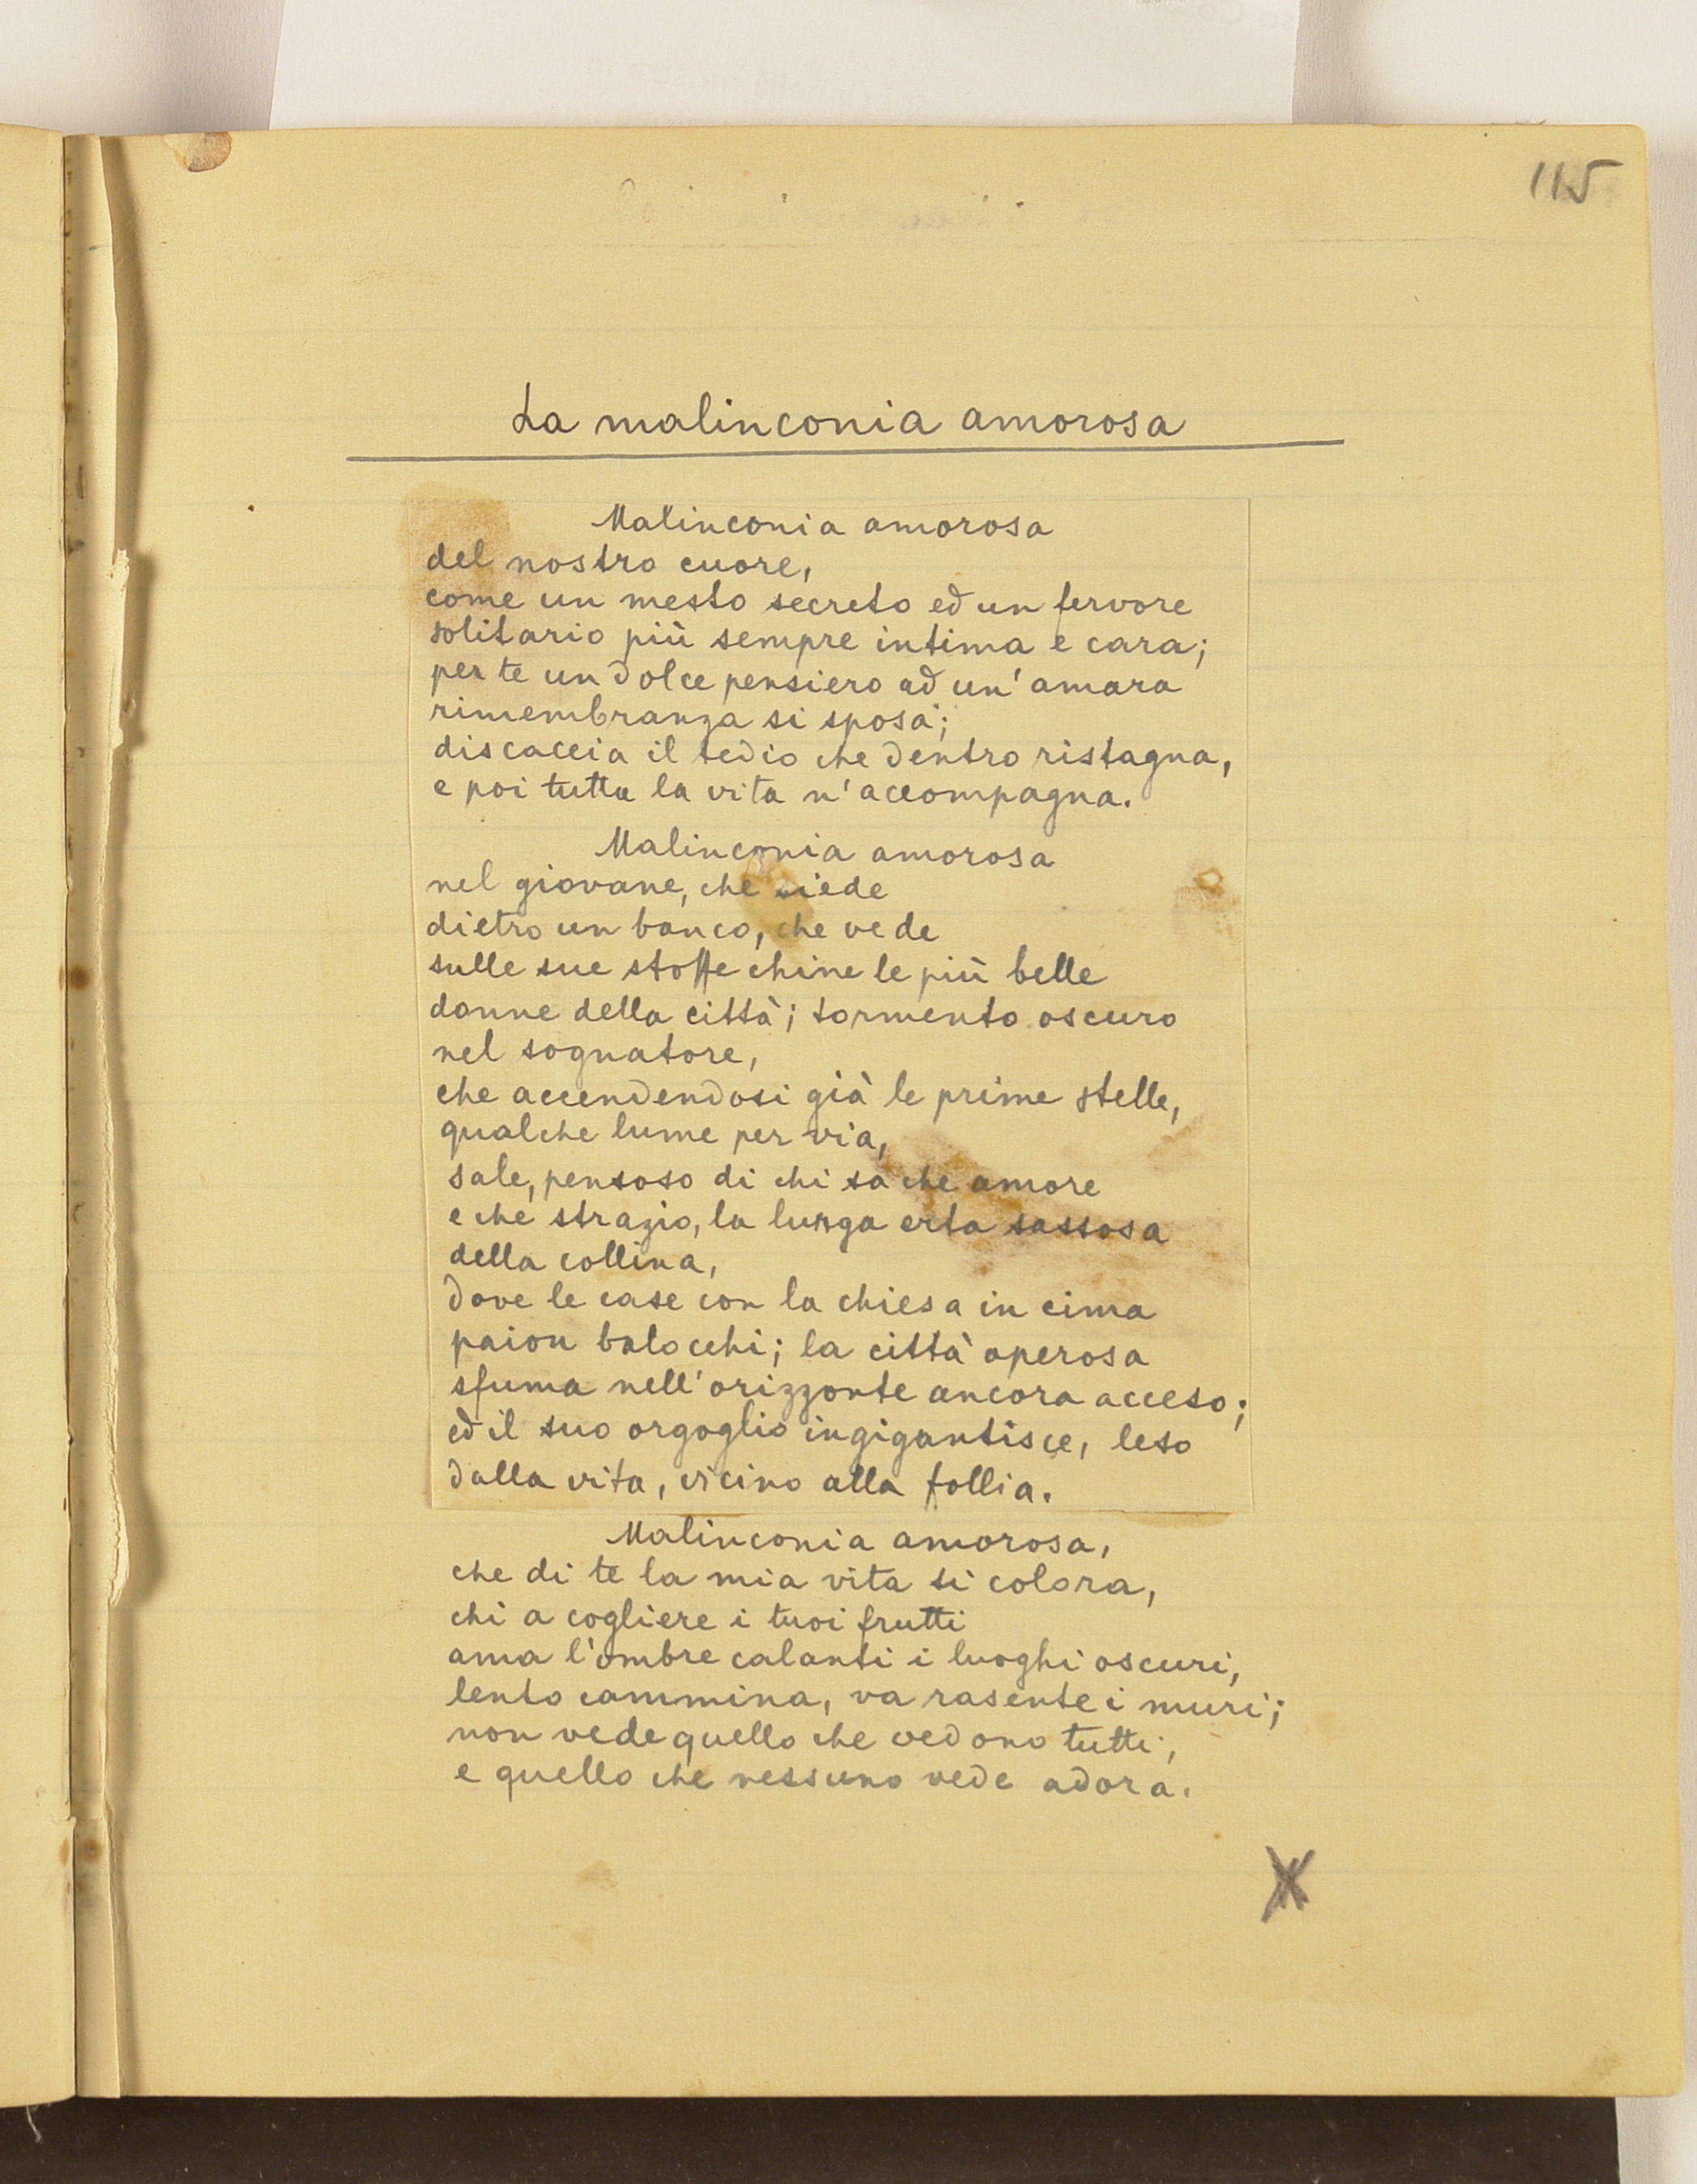 115
La malinconia amorosa
Malinconia amorosa
del nostro cuore,
come un mesto secreto ed un fervore
solitario più sempre intima e cara;
per te un dolce pensiero ad un' amara
rimembranza si sposa;
discaccia il tedio che dentro ristagna,
e poi tutta la vita n' accompagna.
Malinconia amorosa
nel giovane, che siede
dietro un banco, che vede
sulle sue stoffe chine le più belle
donne della città; tormento oscuro
nel sognatore,
che accendendosi già le prime stelle,
qualche lume per via,
sale, pensoso di chi sa che amore
e che strazio, la lunga erta sassosa
della collina,
dove le case con la chiesa in cima
paion balocchi; la città operosa
sfuma nell'orizzonte ancora acceso;
ed il suo orgoglio ingigantisce, leso
dalla vita, vicino alla follia.
Malinconia amorosa,
che di te la mia vita si colora,
chi a cogliere i tuoi frutti
ama l'ombre calanti i luoghi oscuri,
lento cammina, va rasente i muri;
non vede quello che vedono tutti,
e quello che nessuno vede adora.